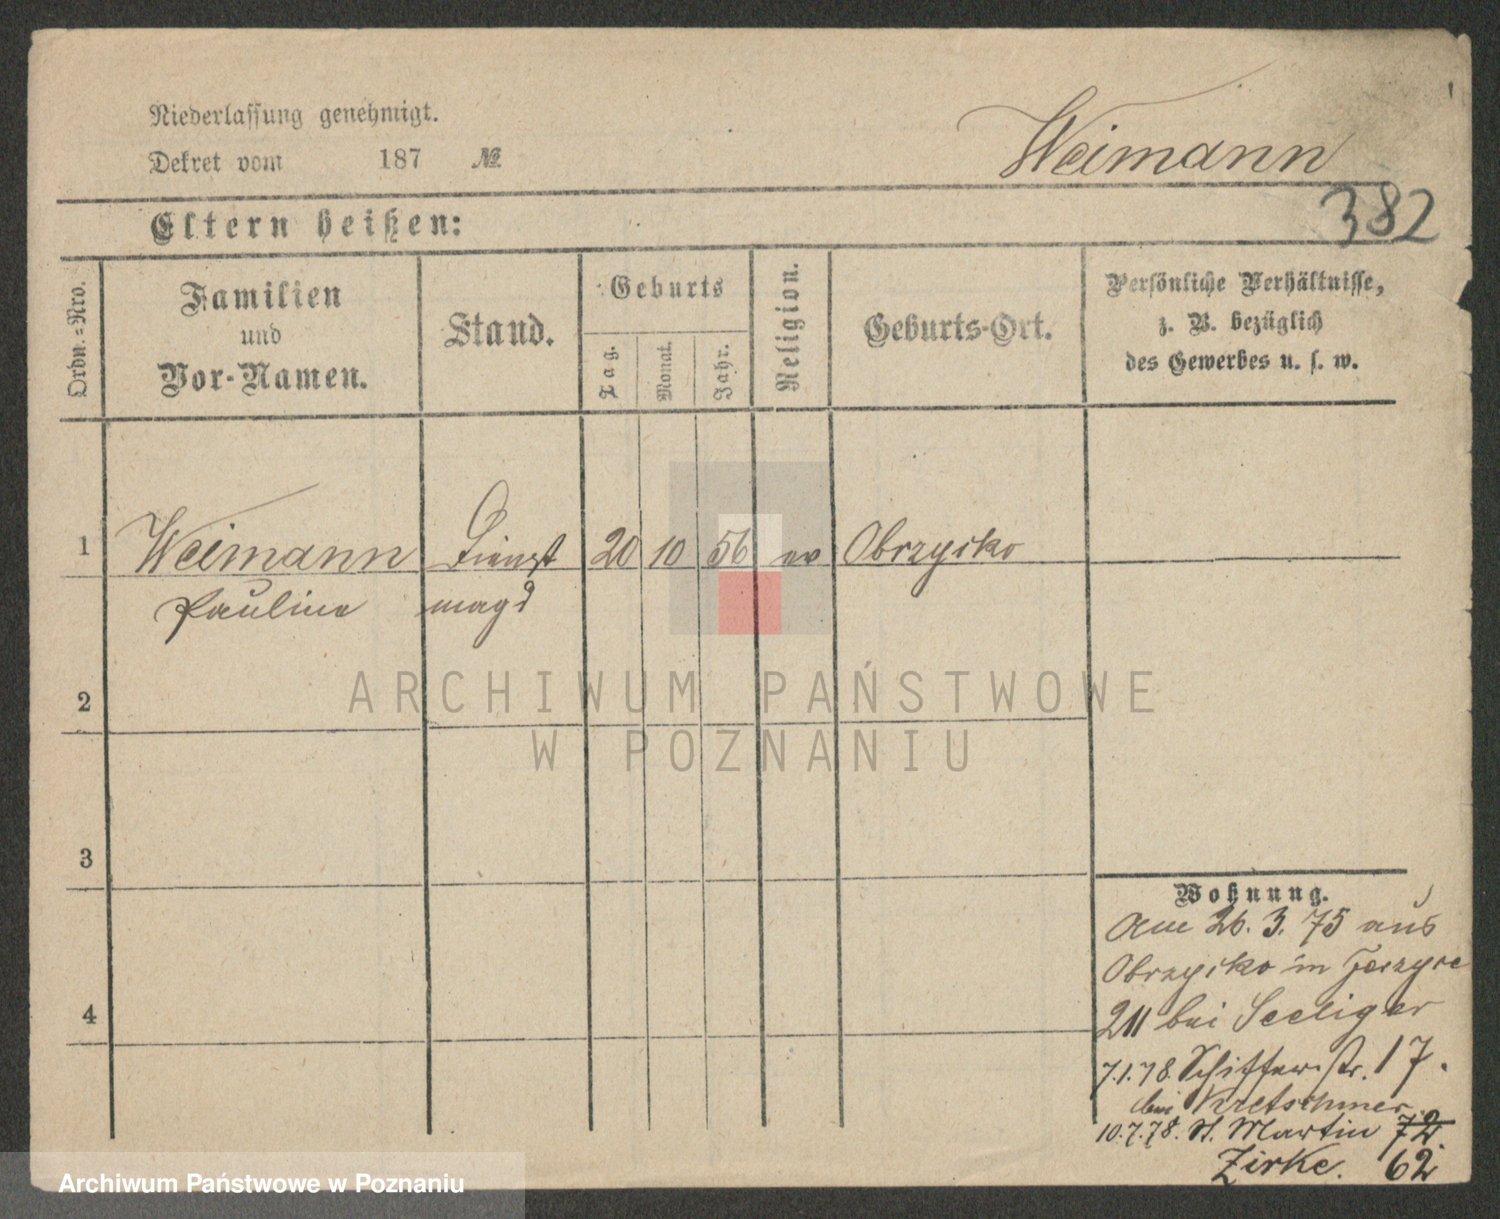 Niederlassung genehmigt.
Dekret vom 187 №
Weimann
382
Eltern heißen:
Ordn.=Nro.
Familien
und
Vor-Namen.
Stand.
Geburts
Tag.
Monat.
Jahr.
Religion.
Geburts-Ort.
Persönliche Verhältnisse,
z. B. bezüglich
des Gewerbes u. s. w.
1 Weimann Dienst 20 10 56 ev Obrzycko
Pauline magd
2
3
4
Wohnung.
Am 26. 3. 75 aus
Obrzycko in
211 bei Seeliger
7.1.78. Schifferstr. 17.
bei Kretschmer.
10.7.78. St. Martin 72.
Zirke. 62
ARCHIWUM PAŃSTWOWE
W POZNANIU
Archiwum Państwowe w Poznaniu